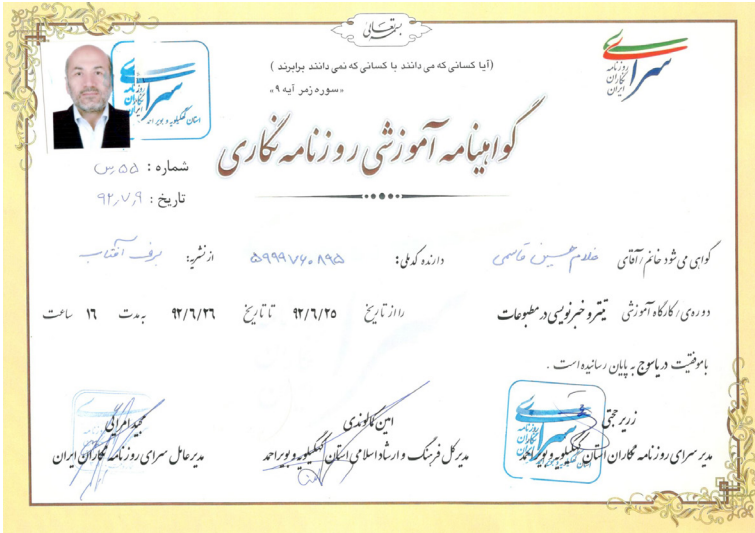 بسمه تعالی
(آیا کسانی که می دانند با کسانی که نمی دانند برابرند)
«سوره زمر آیه ۹»
سرای روزنامه نگاران ایران
سرای روزنامه نگاران ایران
استان کهگیلویه و بویراحمد
گواهینامه آموزشی روزنامه نگاری
شماره : ۵۵ س
تاریخ : ۹۲/۷/۹
گواهی می شود خانم / آقای غلام حسین قاسمی دارنده کدملی: ۵۹۹۹۷۶۰۸۹۵ از نشریه: برف آفتاب
دوره ی / کارگاه آموزشی تیتر و خبرنویسی در مطبوعات را از تاریخ ۹۲/۶/۲۵ تا تاریخ ۹۲/۶/۲۶ به مدت ۱۶ ساعت
باموفقیت در یاسوج به پایان رسانیده است .
زریر حجتی
مدیر سرای روزنامه نگاران استان کهگیلویه و بویراحمد
امین کمالوندی
مدیرکل فرهنگ و ارشاد اسلامی استان کهگیلویه و بویراحمد
مجید امرایی
مدیرعامل سرای روزنامه نگاران ایران